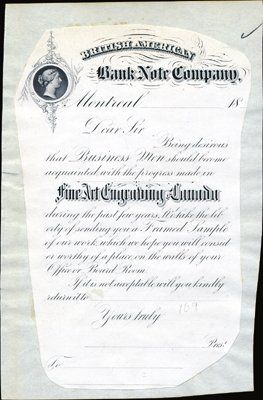 BRITISH AMERICAN
Bank Note Company,
Montreal 18
Dear Sir
Being desirous
that Business Men should become
acquainted with the progress made in
Fine Art Engraving in Canada
during the past few years, We take the lib-
erty of sending you a Framed Sample
of our work, which we hope you will consid
er worthy of a place on the walls of your
Office or Board Room.
If it is not acceptable will you kindly
return it to
Yours truly
Pres!
To